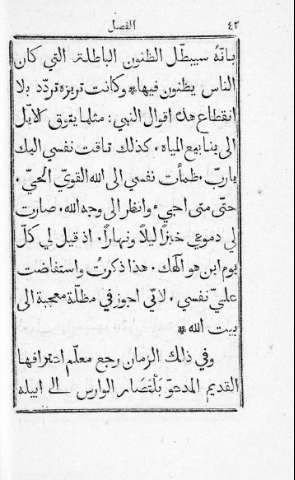 ٤٢ الفصل
بانّهُ سيبطّل الظنون الباطلة التي كان
الناس يظنون فيها * وكانت تريزه تردّد بلا
انقطاع هذه اقوال النبي: مثلما يتوق الايّل
الى ينابيع المياه. كذلك تاقت نفسي اليك
يا ربّ. ظمأت نفسي الى الله القويّ الحيّ.
حتّى متى اجيءُ وانظر الى وجه الله. صارت
لي دموعي خبزًا ليلاً ونهارًا. اذ قيل لي كلّ
يوم اين هو الٰهك. هذا ذكرتُ واستفاضت
عليَّ نفسي. لاني اجوز في مظلّة معجبة الى
بيت الله *
وفي ذلك الزمان رجع معلّم اعترافها
القديم المدعوّ بَلْتَصار الوارس الى ابيله